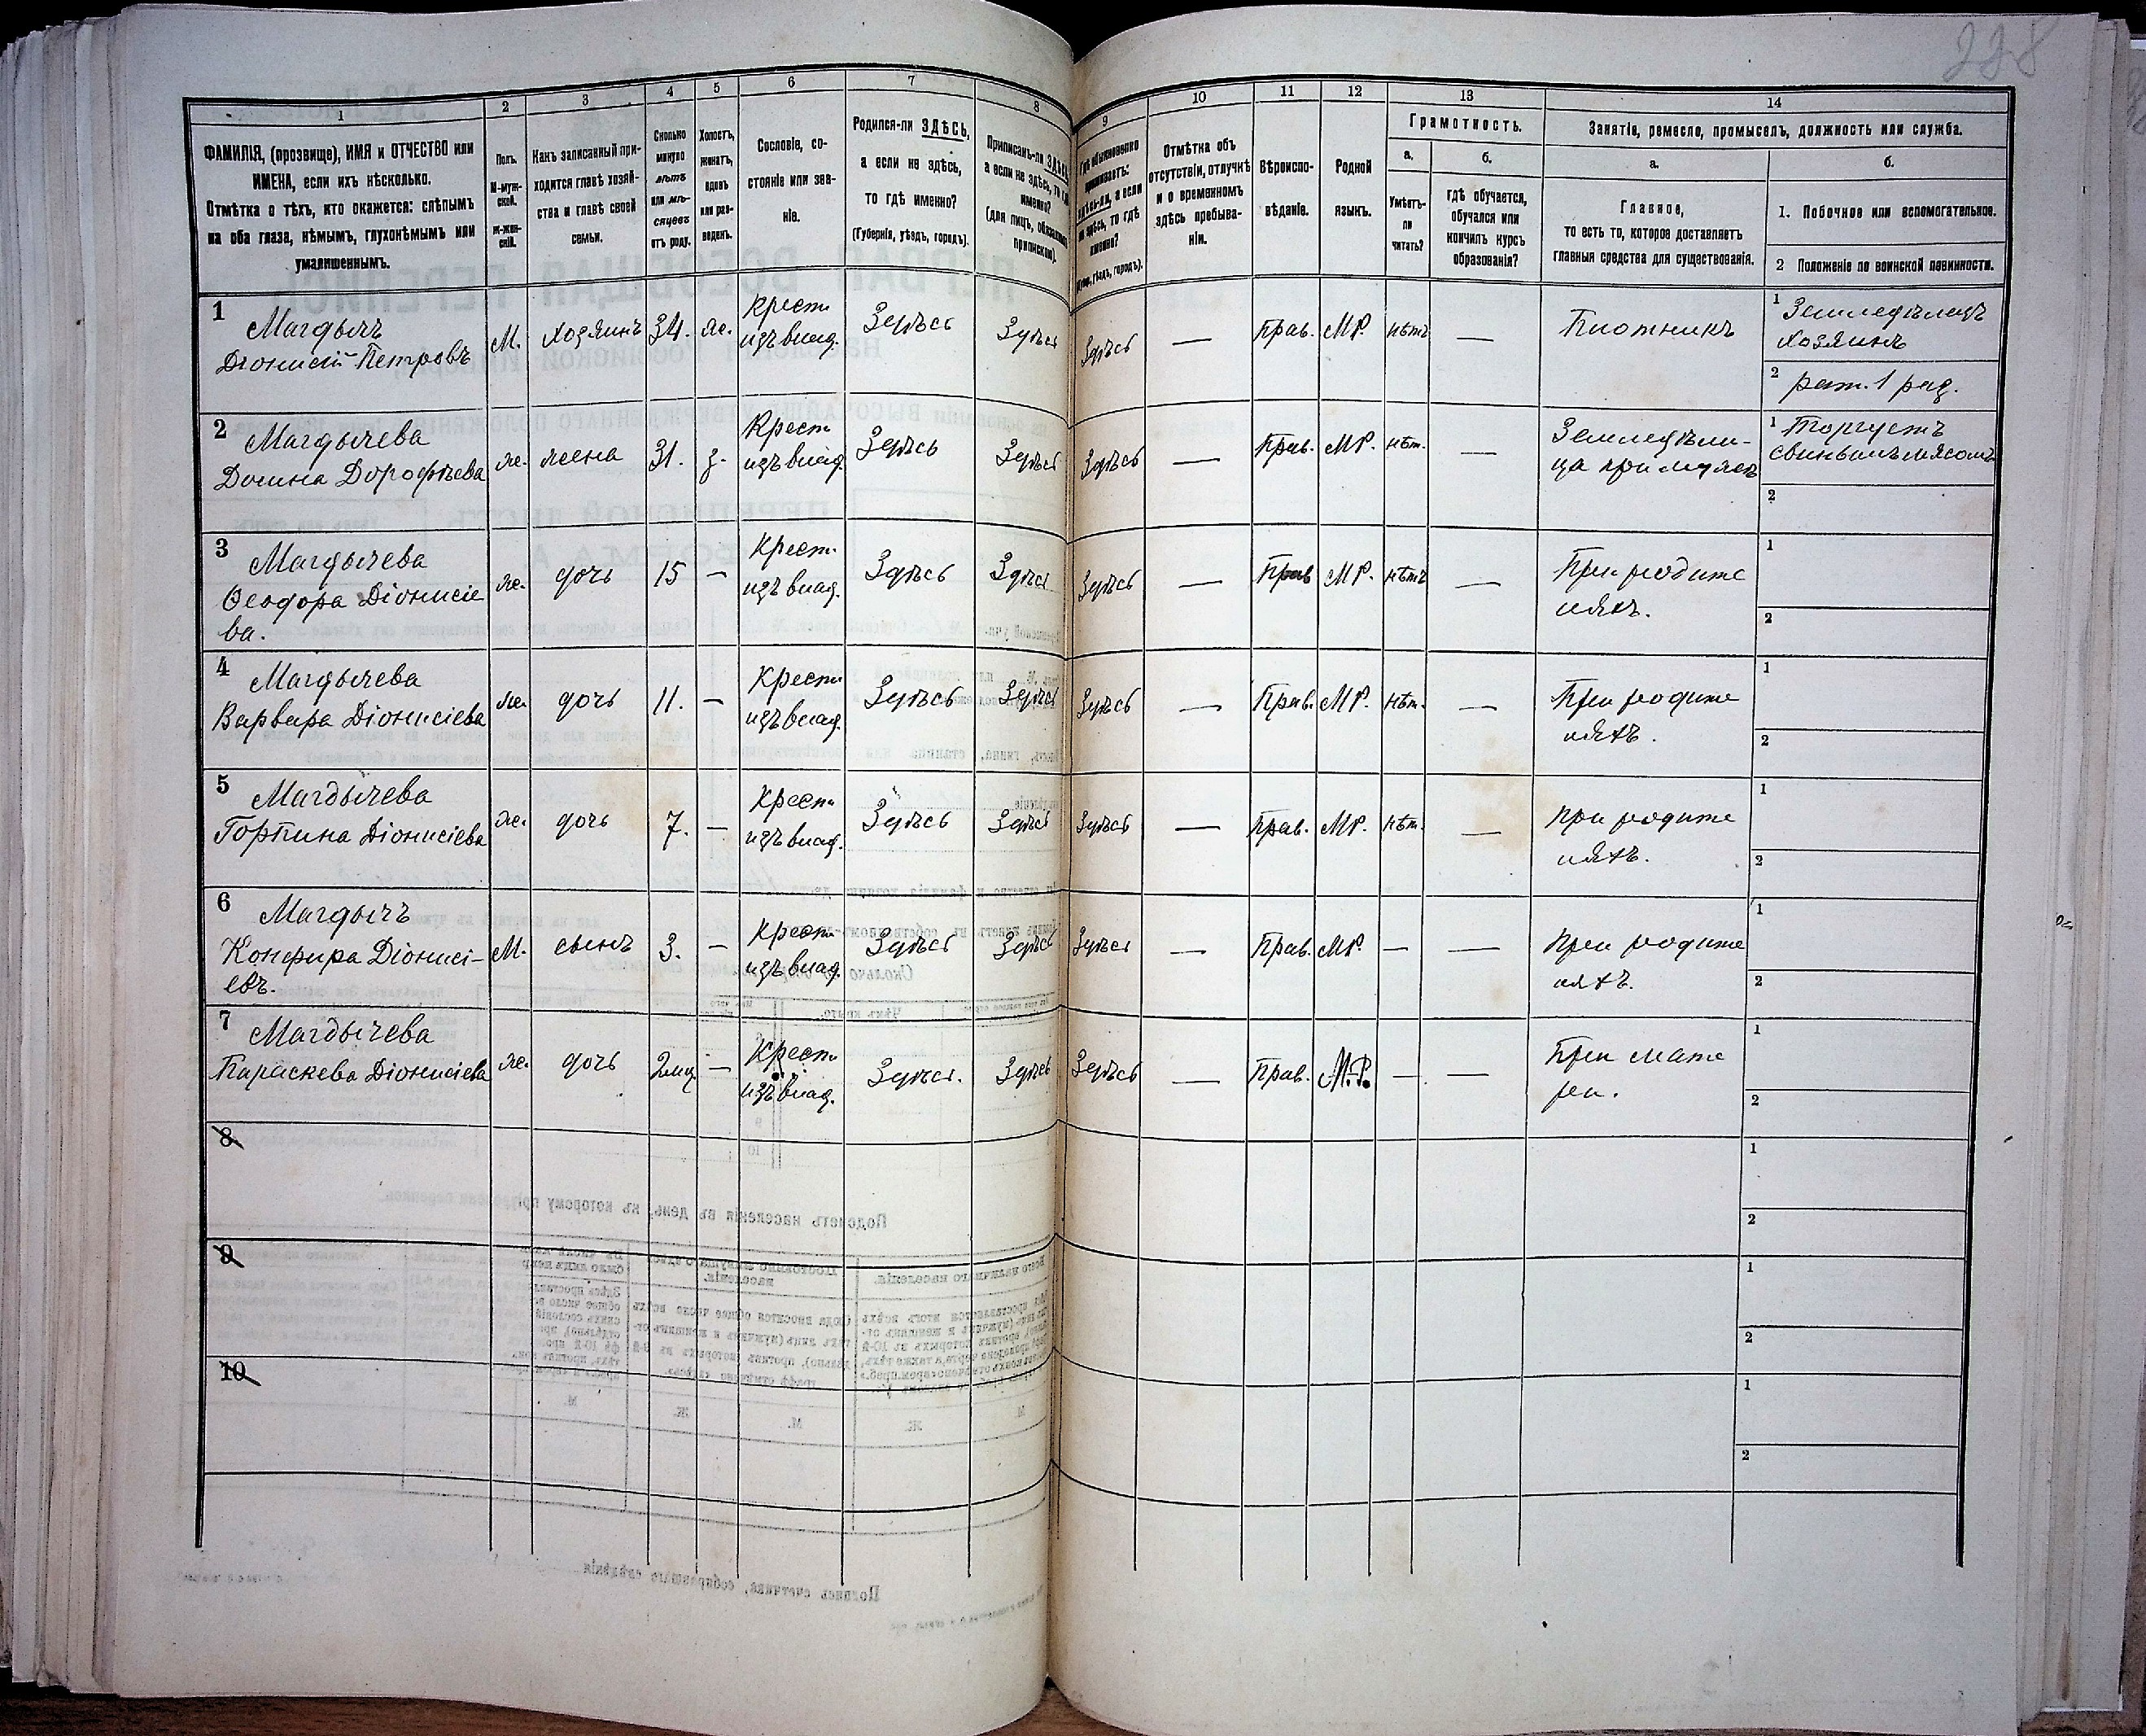 228
1 2 3 4 5 6 7 8 9 10 11 12 13 14
ФАМИЛІЯ, (прозвище), ИМЯ и ОТЧЕСТВО или
ИМЕНА, если ихъ нѣсколько.
Отмѣтка о тѣхъ, кто окажется: слѣпымъ
на оба глаза, нѣмымъ, глухонѣмымъ или
умалишеннымъ.
Полъ.
М-муж-
ской.
Ж-жен-
скій.
Какъ записанный при-
ходится главѣ хозяй-
ства и главѣ своей
семьи.
Сколько
минуло
лѣтъ
или мѣ-
сяцевъ
отъ роду.
Холостъ,
женатъ,
вдовъ
или раз-
веденъ.
Сословіе, со-
стояніе или зва-
ніе.
Родился-ли ЗДѢСЬ,
а если не здѣсь,
то гдѣ именно?
(Губернія, уѣздъ, городъ).
Приписанъ-ли ЗДѢСЬ,
а если не здѣсь, то гдѣ
именно?
(для лицъ, обязанныхъ
припискою).
Гдѣ обыкновенно
проживаетъ:
здѣсь-ли, а если
не здѣсь, то гдѣ
именно?
(Губ., уѣздъ, городъ).
Отмѣтка объ
отсутствіи, отлучкѣ
и о временномъ
здѣсь пребыва-
ніи.
Вѣроиспо-
вѣданіе.
Родной
языкъ.
Грамотность.
а.
Умѣетъ-
ли
читать?
б.
гдѣ обучается,
обучался или
кончилъ курсъ
образованія?
Занятіе, ремесло, промыселъ, должность или служба.
а.
Главное,
то есть то, которое доставляетъ
главныя средства для существованія.
б.
1. Побочное или вспомогательное.
2 Положеніе по воинской повинности.
1 Магдычъ
Діонисій Петровъ
М. хозяинъ 34. ж. Крест. изъ влад. Здѣсь Здѣсь Здѣсь — Прав. МР. нѣтъ — Плотникъ
1 Земледѣлецъ
хозяинъ
2 рат. 1 раз.
2 Магдычева
Домна Дорофѣева
ж. жена 31. з. Крест. изъ влад. Здѣсь Здѣсь Здѣсь — Прав. МР. нѣт. —
Земледѣли-
ца при мужѣ
1 Торгуетъ
свинымъ мясомъ
2
3 Магдычева
Ѳеодора Діонисіе
ва.
ж. дочь 15 — Крест. изъ влад. Здѣсь Здѣсь Здѣсь — Прав МР. нѣтъ —
При родите
ляхъ.
1
2
4 Магдычева
Варвара Діонисіева
ж. дочь 11. — Крест. изъ влад. Здѣсь Здѣсь Здѣсь — Прав. МР. нѣт. —
При родите
ляхъ.
1
2
5 Магдычева
Горпина Діонисіева
ж. дочь 7. — Крест. изъ влад. Здѣсь Здѣсь Здѣсь — Прав. МР. нѣт. —
При родите
ляхъ.
1
2
6 Магдычъ
Діонисі-
евъ.
М. сынъ 3. — Крест. изъ влад. Здѣсь Здѣсь Здѣсь — Прав. МР. — —
При родите
ляхъ.
1
2
7 Магдычева
Параскева Діонисіева
ж. дочь 2 мц. — Крест. изъ влад. Здѣсь. Здѣсь Здѣсь — Прав. М.Р. — —
При мате
ри.
1
2
8
1
2
9
1
2
10
1
2